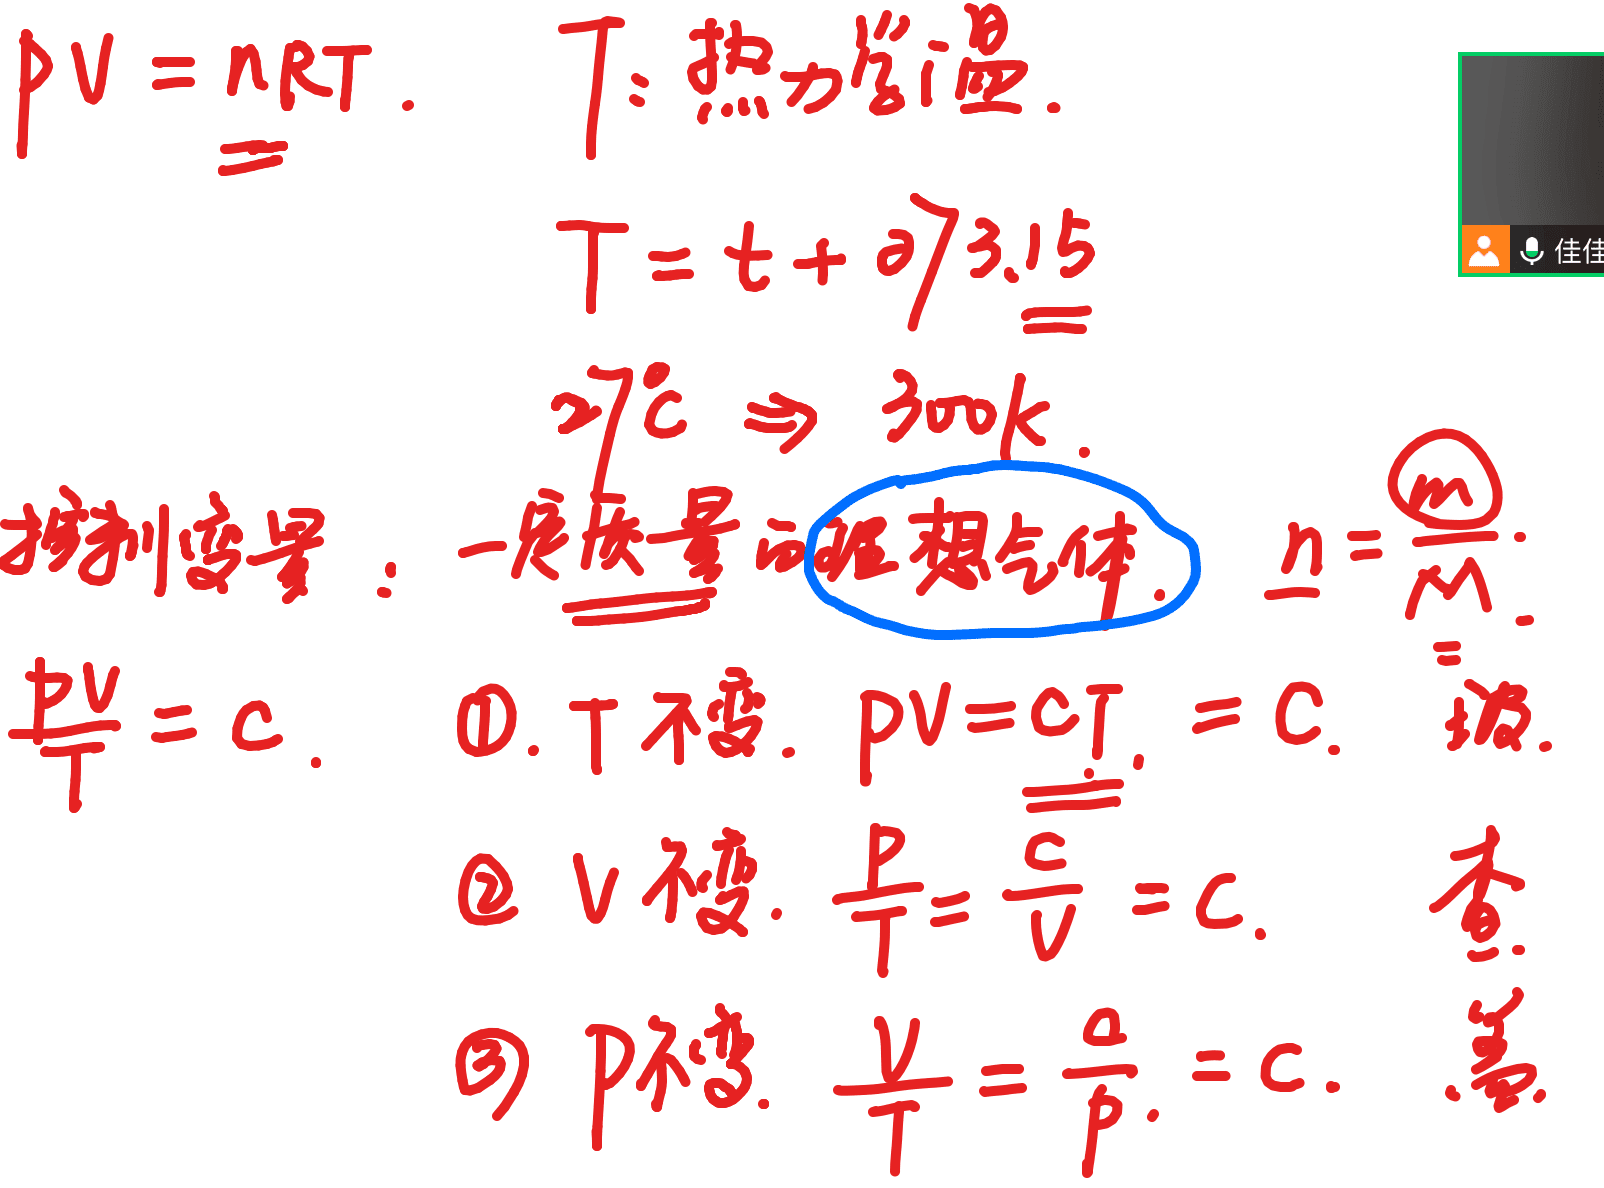 pV = nRT.
T: 热力学温.
T = t + 273.15
27°C ⇒ 300k.
佳佳
控制变量: 一定质量的理想气体.
n = m/M.
pV/T = c.
①. T不变. pV = CT. = C. 玻.
② V不变. P/T = C/V = C. 查.
③ P不变. V/T = C/P. = C. 盖.